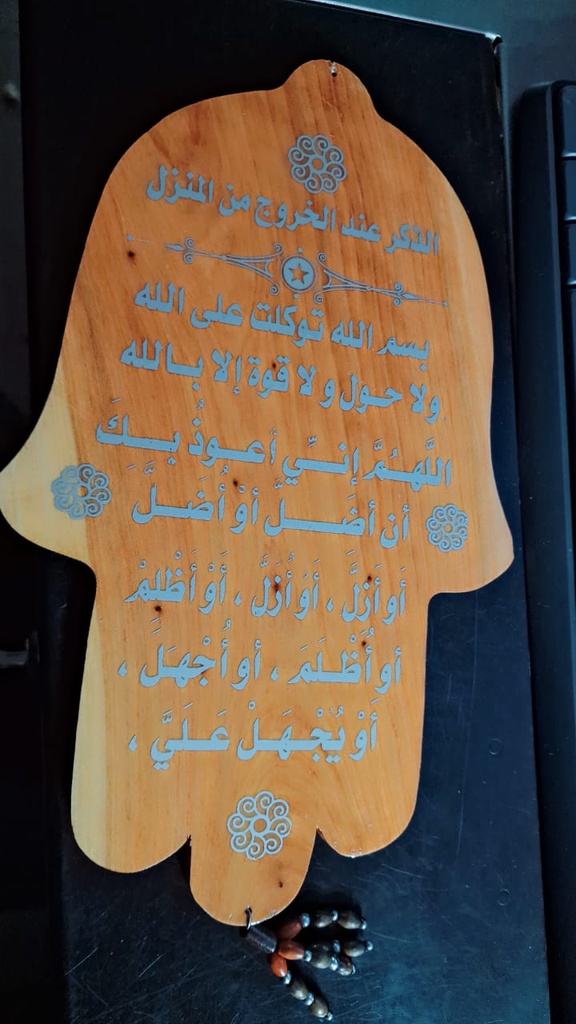 الذكر عند الخروج من المنزل
بسم الله توكلت على الله
ولا حول ولا قوة إلا بالله
اللَّهُمَّ إنِّي أعوذُ بكَ
أن أضَلَّ أوْ أُضَلَّ
أو أَزلَّ ، أوْ أُزَلَّ ، أَوْ أَظْلِمْ
أو أُظْلَمَ ، أو أُجْهَلَ ،
أَوْ يُجْهَلْ عَلَيَّ ،